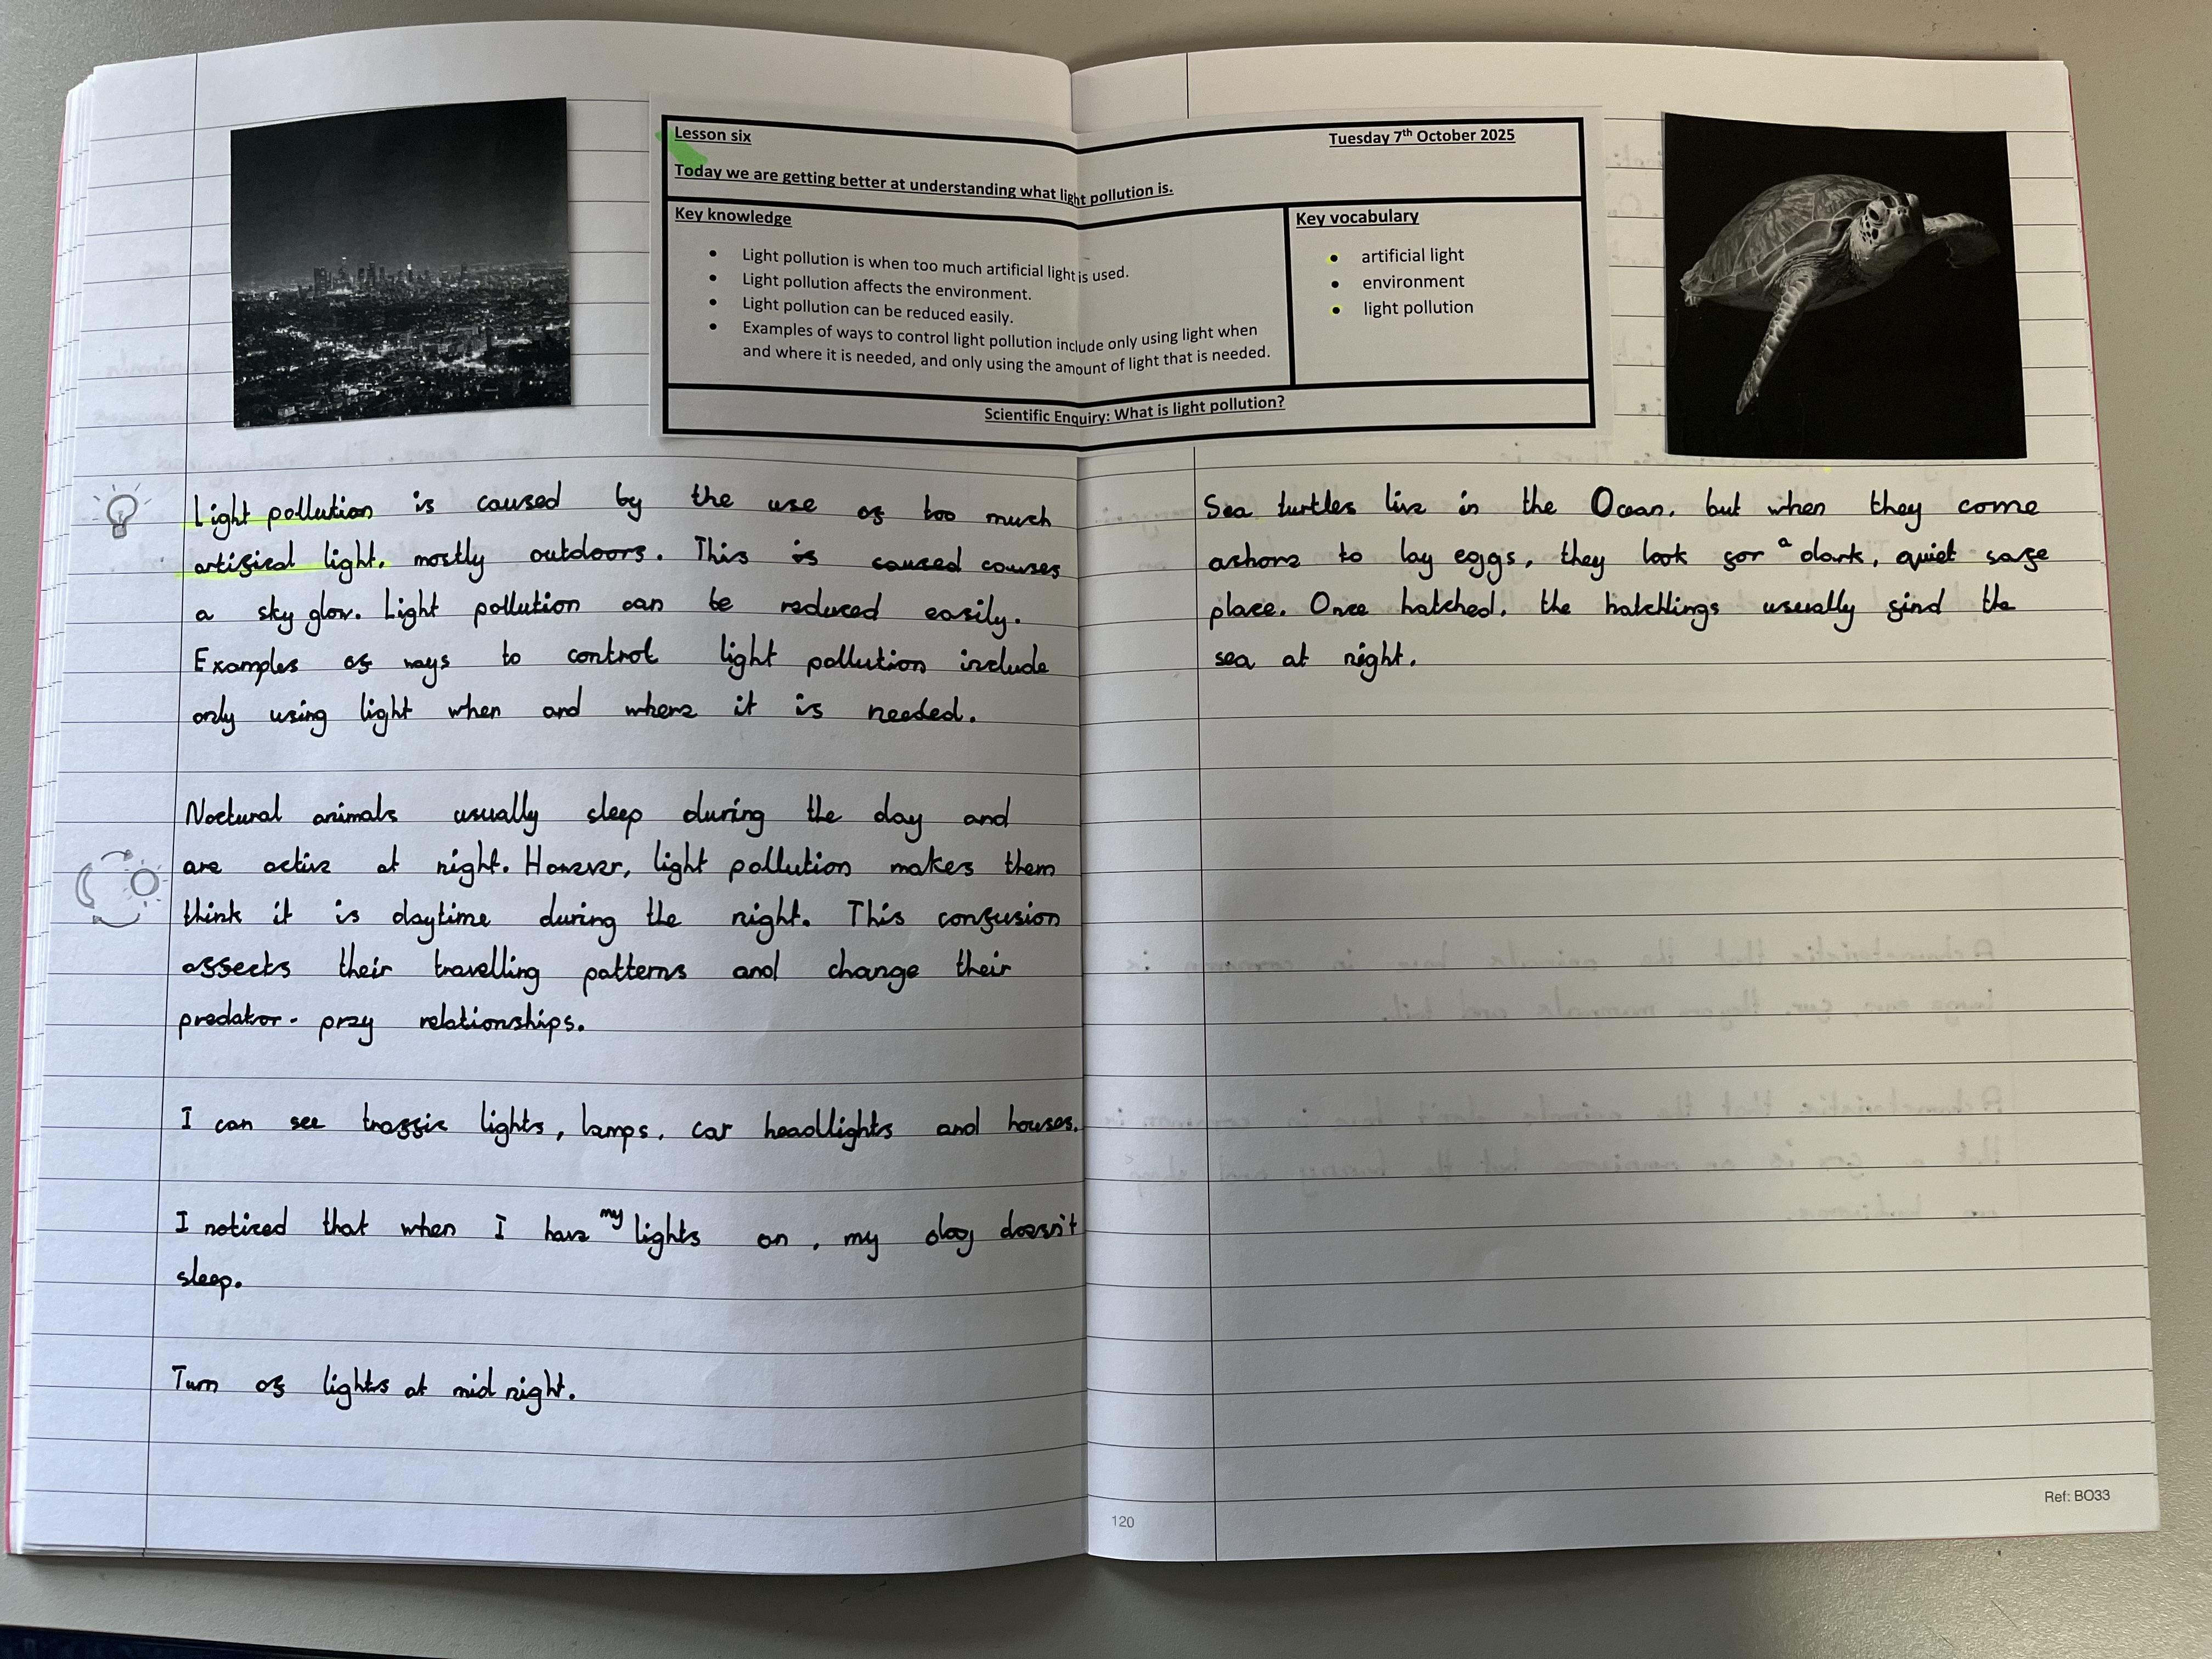 Lesson six
Tuesday 7th October 2025
Today we are getting better at understanding what light pollution is.
Key knowledge
• Light pollution is when too much artificial light is used.
• Light pollution affects the environment.
• Light pollution can be reduced easily.
• Examples of ways to control light pollution include only using light when
and where it is needed, and only using the amount of light that is needed.
Key vocabulary
• artificial light
• environment
• light pollution
Scientific Enquiry: What is light pollution?
Light pollution is caused by the use of too much
artifical light, mostly outdoors. This is caused causes
a sky glow. Light pollution can be reduced easily.
Examples of ways to control light pollution include
only using light when and where it is needed.
Noctural animals usually sleep during the day and
are active at night. However, light pollution makes them
think it is daytime during the night. This confusion
affects their travelling patterns and change their
predator-prey relationships.
I can see traffic lights, lamps, car headlights and houses.
I noticed that when I have my lights on, my dog doesn't
sleep.
Turn of lights at mid night.
Sea turtles live in the Ocean, but when they come
ashore to lay eggs, they look for a dark, quiet safe
place. Once hatched, the hatchlings usually find the
sea at night.
120
Ref: BO33